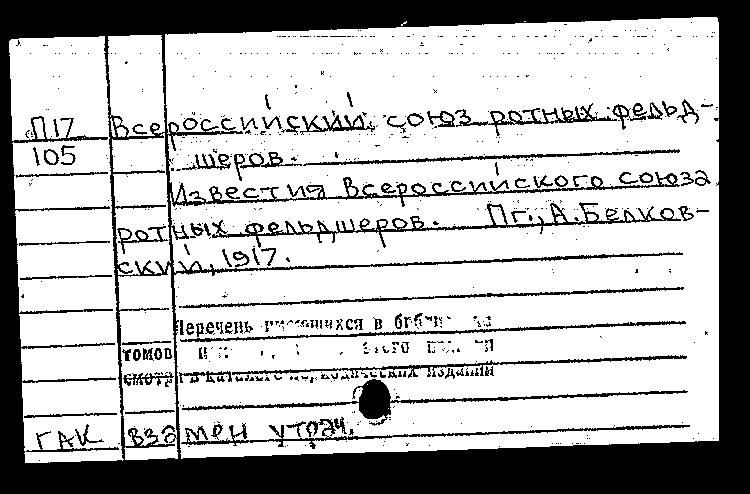 П17 Всероссийский союз ротных фельд-
105 шеров.
Известия Всероссийского союза
ротных фельдшеров. Пг., А.Белков-
ский, 1917.
Перечень имеющихся в
томов этого
смотри в каталоге периодических изданий
ГАК взамен утрач.